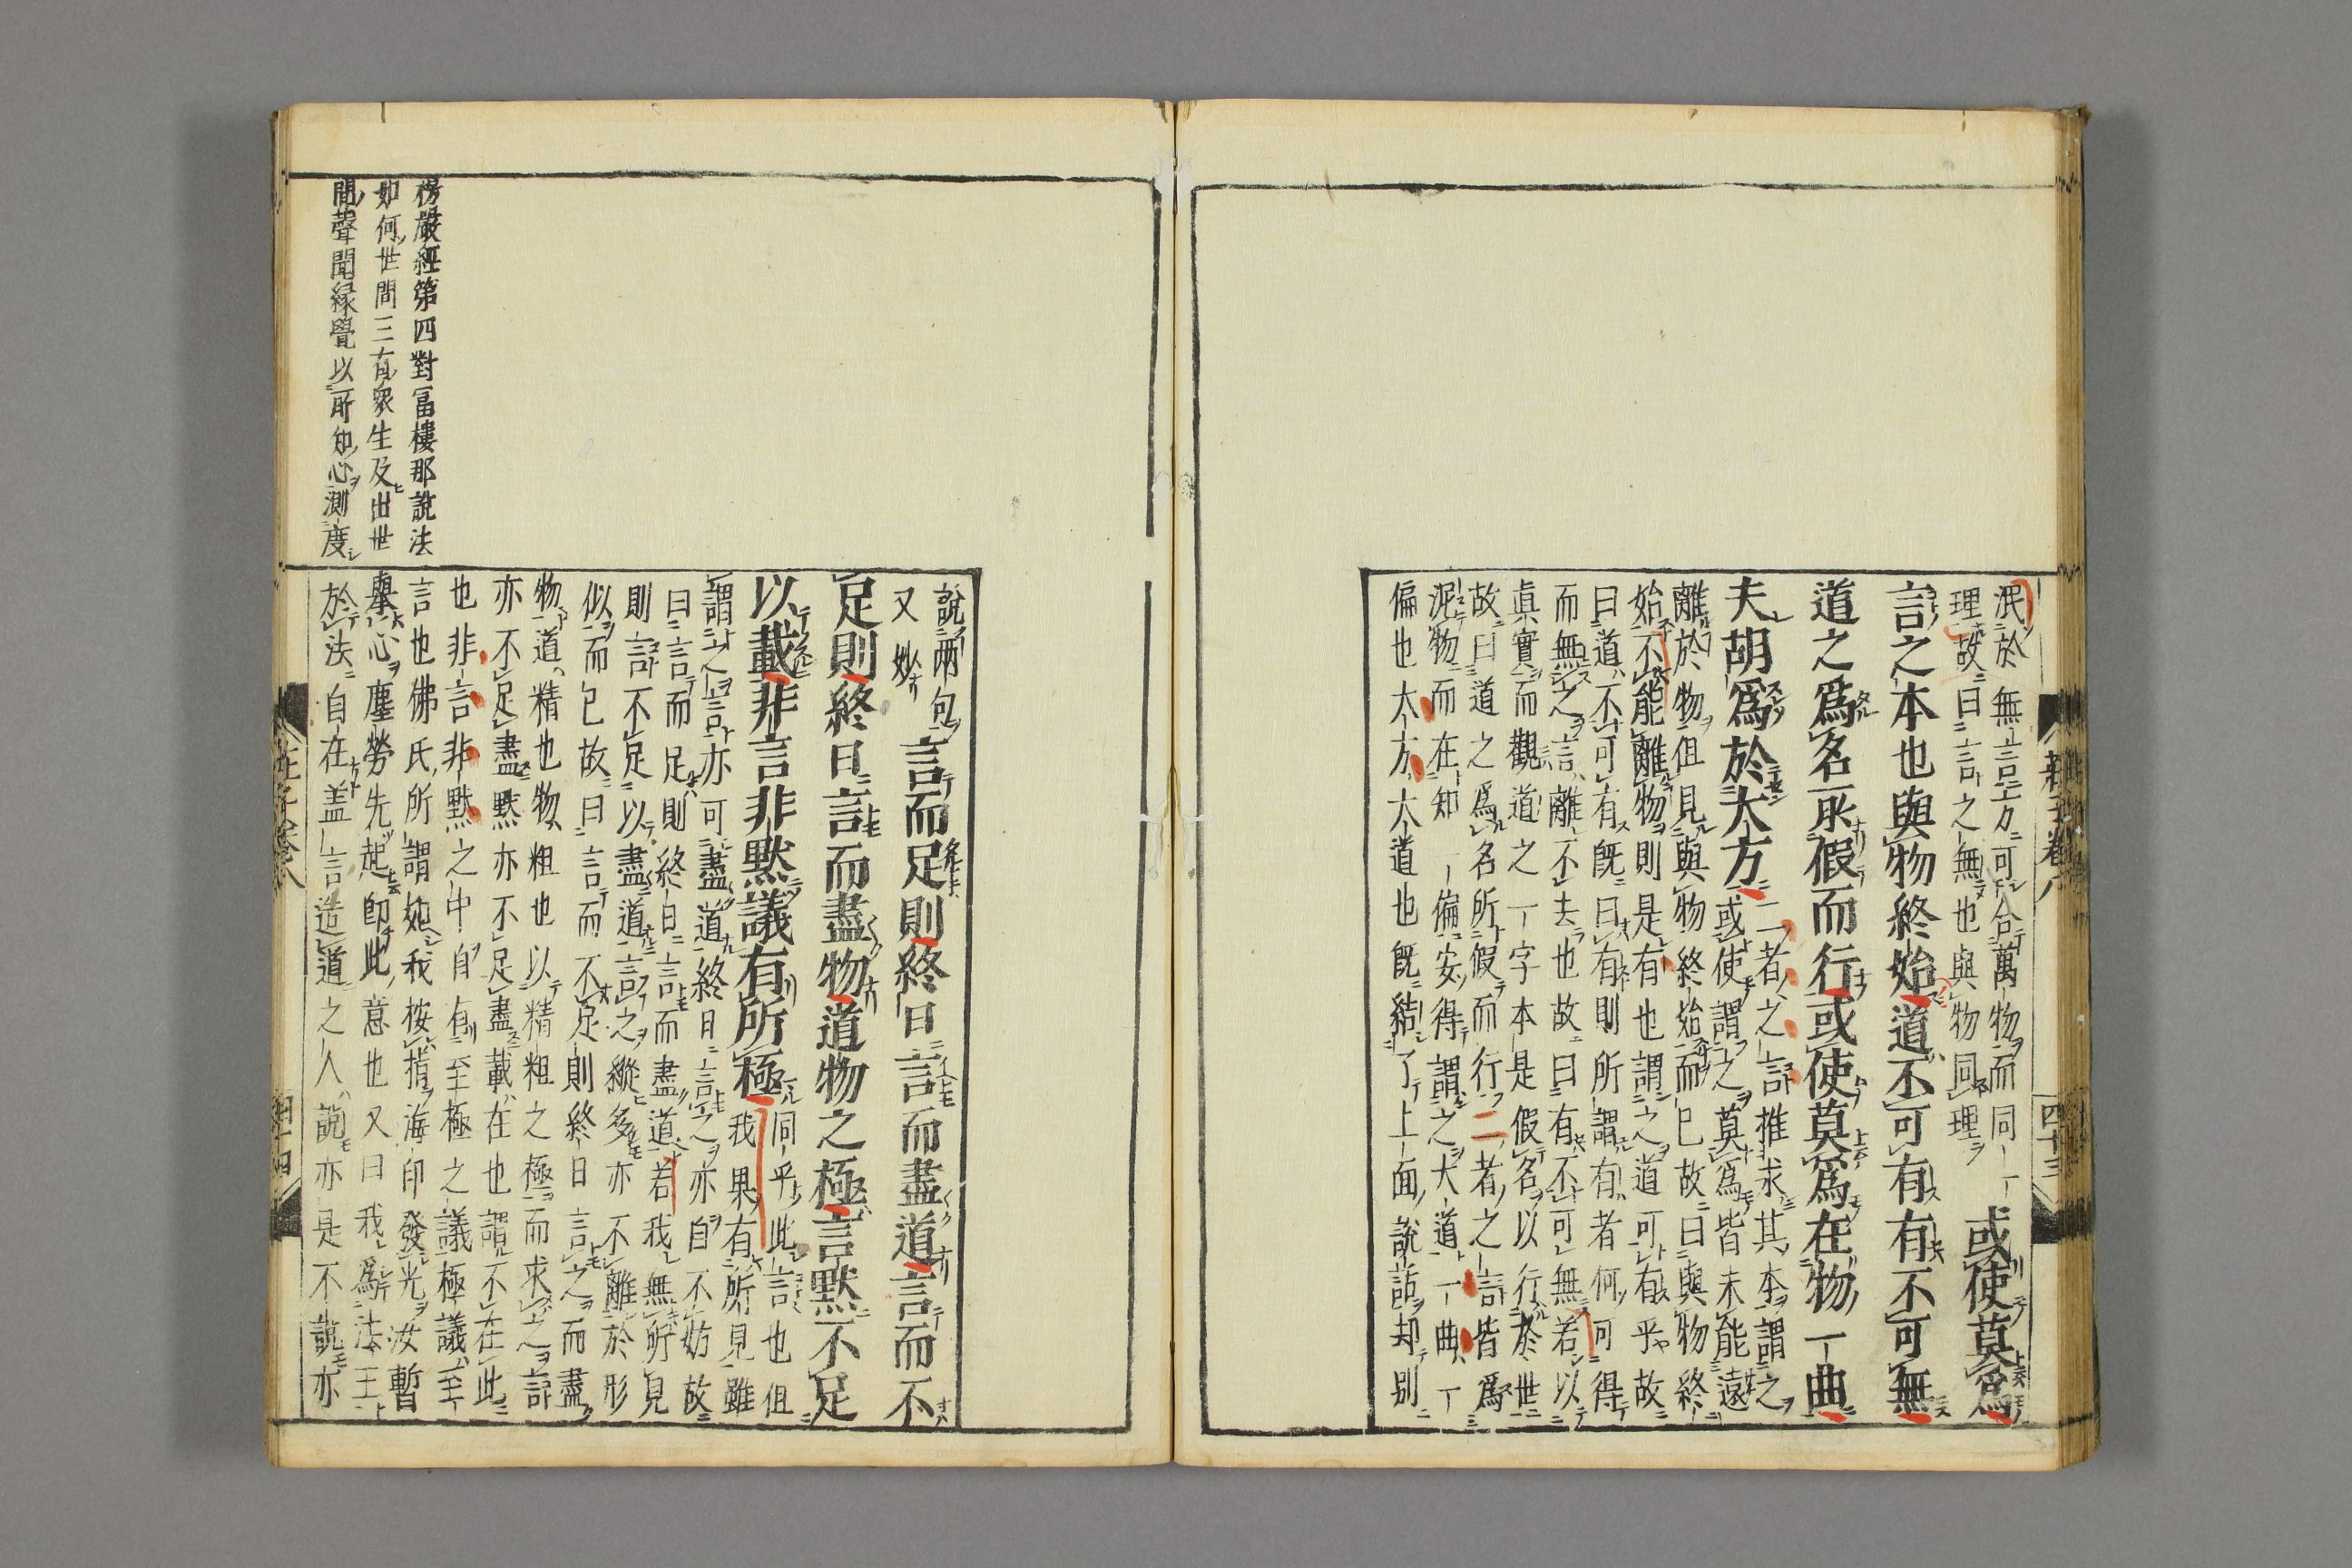 泯於無言方可合萬物而同一
理故曰言之無也與物同理
或使莫爲
言之本也與物終始道不可有有不可無
道之爲名所假而行或使莫爲在物一曲
夫胡爲於大方
二者之言推求其本謂之
或使謂之莫爲皆未能遠
離於物但見與物終始而已故曰與物終
始不能離物則是有也謂之道可有乎故
曰道不可有既曰有則所謂有者何可得
而無之言離不去也故曰有不可無若以
眞實而觀道之一字本是假名以行於世
故曰道之爲名所假而行二者之言皆爲
泥物而在知一偏安得謂之大道一曲一
偏也大方大道也既結了上面說話却別
說兩句
又妙
言而足則終日言而盡道言而不
足則終日言而盡物道物之極言默不足
以載非言非默議有所極
同乎此言也但
我果有所見雖
謂之言亦可盡道終日言之亦自不妨故
曰言而足則終日言而盡道若我無所見
則言不足以盡道言之縱多亦不離於形
似而已故曰言而不足則終日言之而盡
物道精也物粗也以精粗之極而求之言
亦不足盡默亦不足盡載在也謂不在此
也非言非默之中自有至極之議極議至
言也佛氏所謂如我按指海印發光汝暫
擧心塵勞先起卽此意也又曰我爲法王
於法自在盖言造道之人說亦是不說亦
楞嚴經第四對富樓那說法
如何世間三有衆生及出世
間聲聞緣覺以所知心測度
莊子卷八
四十三